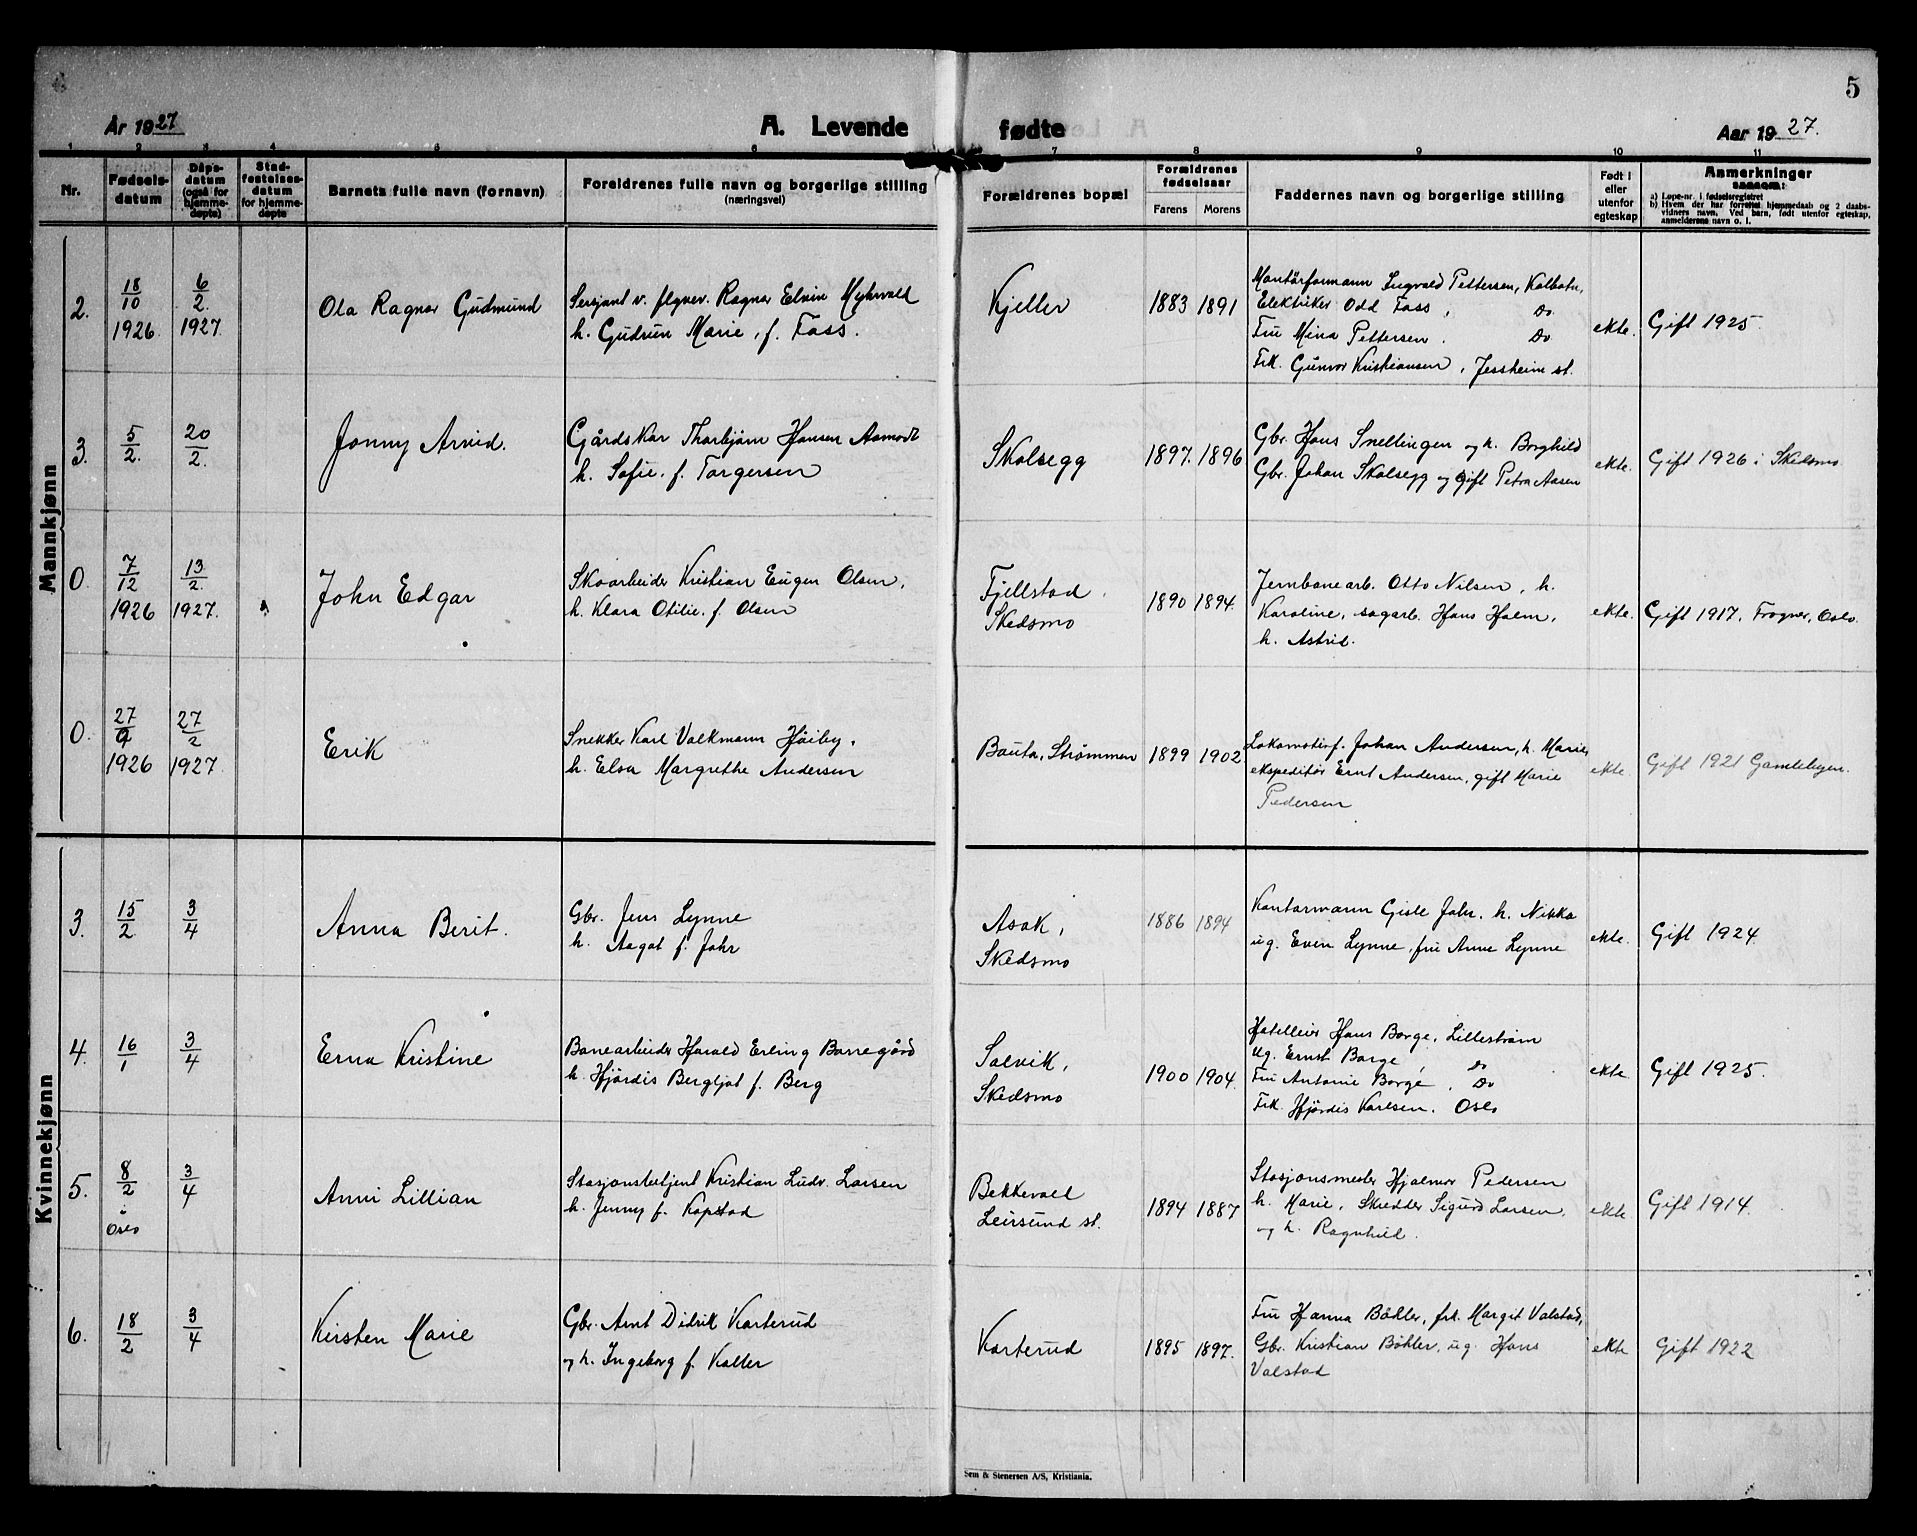 5
År 1927
A. Levende
fødte
Aar 1927.
1 2 3 4 5 6 7 8 9 10 11
Nr.
Fødsels-
datum
Dåps-
datum
(også for
hjemme-
døpte)
Stad-
festelses-
datum
for hjemme-
døpte
Barnets fulle navn (fornavn)
Foreldrenes fulle navn og borgerlige stilling
(næringsvei)
Forældrenes bopæl
Forældrenes
fødselsaar
Farens Morens
Faddernes navn og borgerlige stilling
Født i
eller
utenfor
egteskap
Anmerkninger
saasom:
a) Løpe-nr. i fødselsregistret
b) Hvem der har forrettet hjemmedaab og 2 daabs-
vidners navn. Ved barn, født utenfor egteskap,
anmelderens navn o. l.
Mannkjønn
2.
18/10
1926
6/2
1927.
Ola Ragnar Gudmund
Sersjant v. flyver. Ragnar Elvin Myhrvold
h. Gudrun Marie, f. Fass.
Kjeller
1883 1891
Montørformann Ingvald Pettersen, Kolbotn,
Elektriker Odd Fass, Do
Fru Mina Pettersen. Do
Frk. Gunvor Kristiansen, Jessheim st.
ekte.
Gift 1925.
3.
5/2.
20/2.
Jonny Arvid.
Gårdskar Thorbjørn Hansen Aamodt
h. Sofie, f. Torgersen
Skolsegg
1897. 1896
Gbr. Hans Snellingen og h. Borghild
Gbr. Johan Skolsegg og gift Petra Aasen
ekte.
Gift 1926 i Skedsmo.
0.
7/12
1926
13/2
1927.
John Edgar
Skoarbeider Kristian Eugen Olsen,
h. Klara Otilie. f. Olsen
Fjellstad,
Skedsmo
1890 1894.
Jernbanearb. Otto Nilsen, h.
Karoline, sagarb. Hans Holm,
h. Astrid.
ekte.
Gift 1917, Frogner, Oslo.
0.
27/9
1926
27/2
1927
Erik
Snekker Karl Volkmann Høiby.
h. Elsa Margrethe Andersen
Bauta, Strømmen
1899 1902
Lokomotivf. Johan Andersen, h. Marie,
ekspeditør Ernt Andersen, gift Marie
Pedersen
ekte.
Gift 1921 Gamlebyen.
Kvinnekjønn
3.
15/2
3/4
Anna Berit.
Gbr. Jens Lynne
h. Aagot f. Johr
Asak,
Skedsmo
1886 1894
Kontormann Gisle Johr, h. Nikka
ug. Even Lynne, fru Anne Lynne
ekte.
Gift 1924.
4.
16/1
3/4
Erna Kristine
Banearbeider Harald Erling Barregård
h. Hjördis Bergljot f. Berg
Solvik,
Skedsmo
1900 1904.
Hotelleier Hans Borge, Lillestrøm
ug. Ernst Borge, Do
Fru Antonie Borge, Do
Frk. Hjördis Karlsen. Oslo
ekte
Gift 1925.
5.
8/2
i
Oslo
3/4
Anni Lillian
Stasjonsbetjent Kristian Ludv. Larsen
h. Jenny f. Kopstad
Bekkevold
Leirsund st.
1894 1887
Stasjonsmester Hjalmar Pedersen
h. Marie, Skredder Sigurd Larsen,
og h. Ragnhild.
ekte
Gift 1914.
6.
18/2
3/4
Kirsten Marie
Gbr. Arnt Didrik Korterud
og h. Ingeborg f. Koller
Korterud
1895 1897.
Fru Hanna Böhler, frk. Margit Valstad,
Gbr. Kristian Böhler, ug. Hans
Valstad
ekte
Gift 1922
Sem & Stenersen A/S, Kristiania.